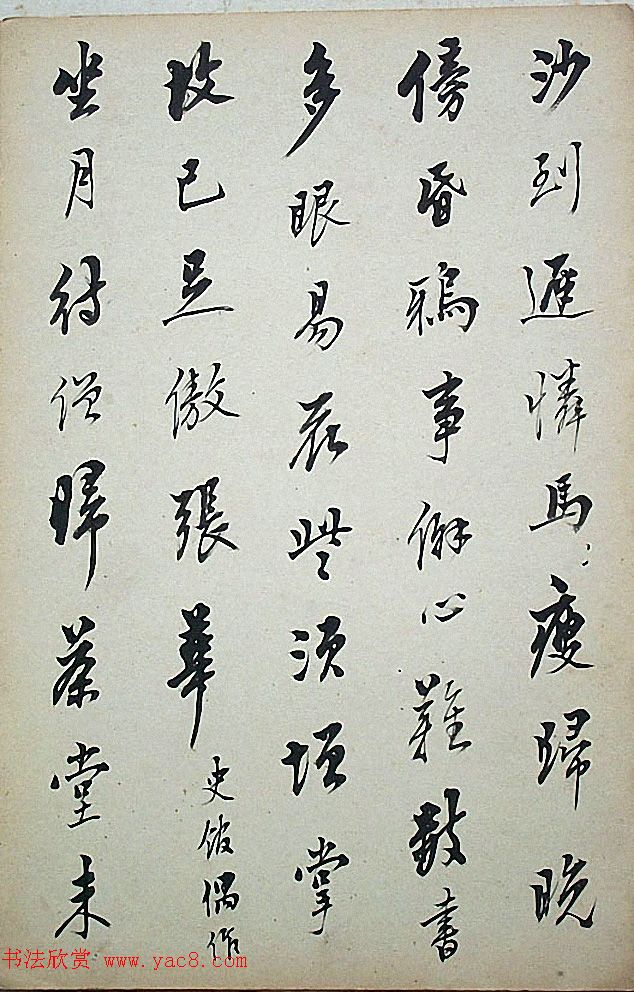 沙到遲憐馬瘦歸晚
傍昏鴉事僻心難數書
多眼易花些須增掌
故已足傲張華
史館偶作
坐月待僧歸茶堂未
书法欣赏 www.yac8.com